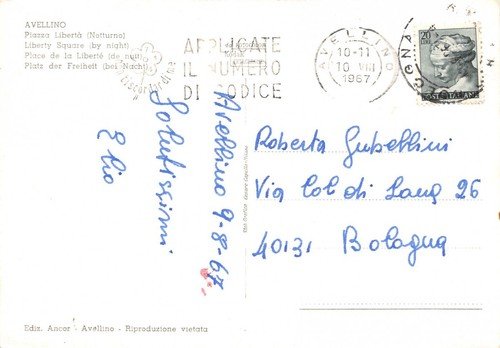 AVELLINO
Piazza Libertà (Notturno)
Liberty Square (by night)
Place de la Liberté (de nuit)
Platz der Freiheit (bei Nacht)
APPLICATE
IL NUMERO
DI CODICE
AVELLINO
10-11
10 VIII
1967
20
POSTE ITALIANE
Avellino 9-8-67
Salutissimi
Elio
Roberta Gubellini
Via Col di Lang 26
40131 Bologna
Ediz. Ancor - Avellino - Riproduzione vietata